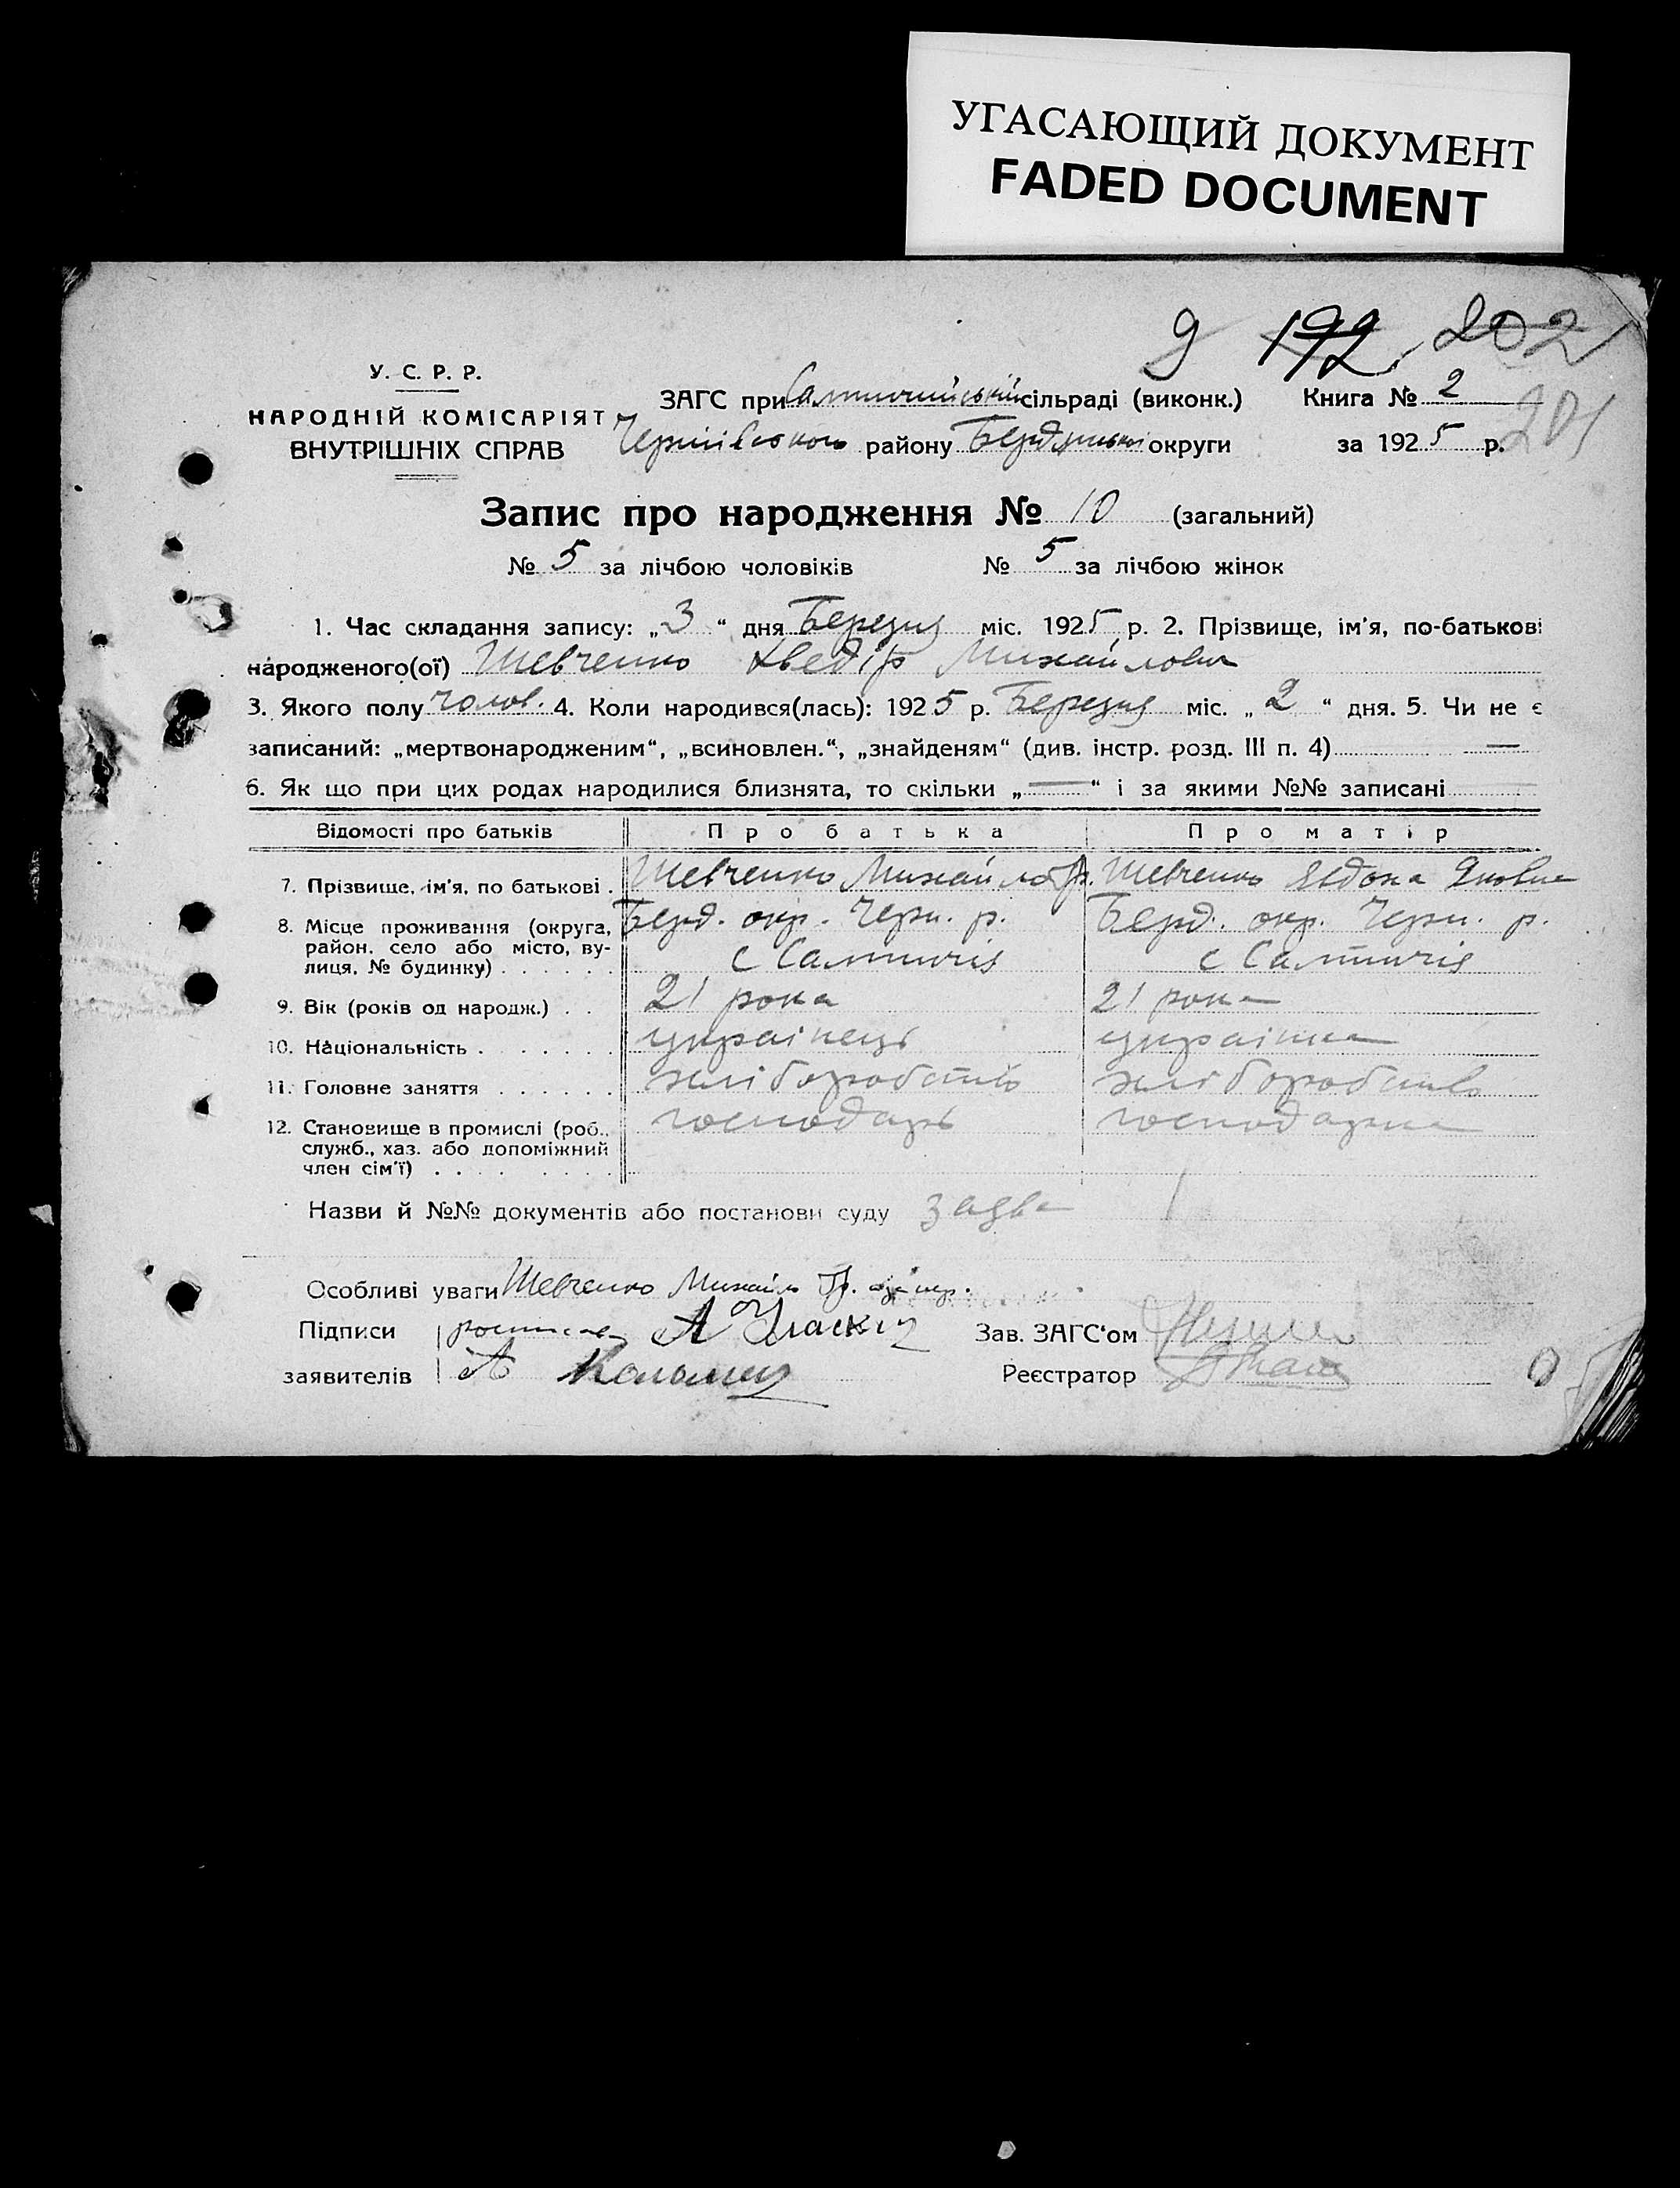 УГАСАЮЩИЙ ДОКУМЕНТ
FADED DOCUMENT
9 192 202
201
У. С. Р. Р.
НАРОДНІЙ КОМІСАРІЯТ
ВНУТРІШНІХ СПРАВ
ЗАГС при Салтичийській сільраді (виконк.) Книга № 2
Чернігівського району Бердянської округи за 1925 р.
Запис про народження № 10 (загальний)
№ 5 за лічбою чоловіків № 5 за лічбою жінок
1. Час складання запису: „3“ дня Березня міс. 1925 р. 2. Прізвище, ім'я, по-батькові
народженого(ої) Шевченко Хведір Михайлович
3. Якого полу чолов. 4. Коли народився(лась): 1925 р. Березня міс. „2“ дня. 5. Чи не є
записаний: „мертвонародженим“, „всиновлен.“, „знайденям“ (див. інстр. розд. III п. 4) —
6. Як що при цих родах народилися близнята, то скільки „—“ і за якими №№ записані
Відомості про батьків Про батька Про матір
7. Прізвище, ім'я, по батькові . Шевченко Михайло Гр. Шевченко Явдоха Яковна
8. Місце проживання (округа, Берд. окр. Черн. р. Берд. окр. Черн. р.
район, село або місто, ву-
лиця, № будинку) . . . . . . с Салтичія с Салтичія
9. Вік (років од народж.) . . 21 рока 21 рока
10. Національність . . . . . . . українець українка
11. Головне заняття . . . . . . хліборобство хліборобство
12. Становище в промислі (роб., господарь господарка
служб., хаз. або допоміжний
член сім'ї) . . . . . . . .
Назви й №№ документів або постанови суду заява
Особливі уваги Шевченко Михайло Гр.
Підписи Зав. ЗАГС'ом
заявителів А Реєстратор